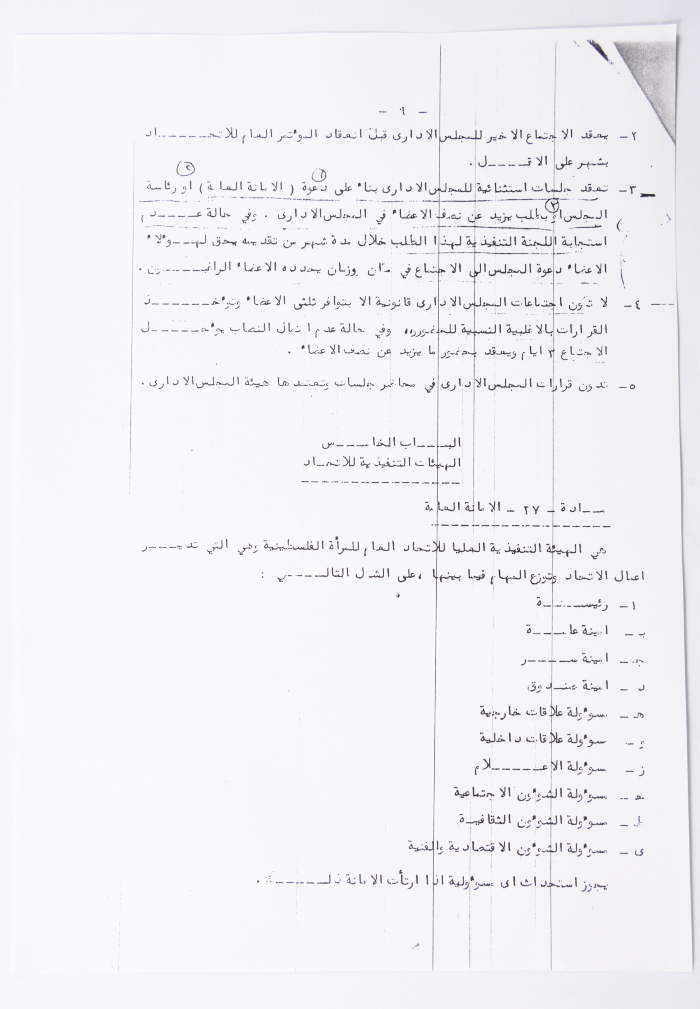 - ٩ -
٢- يعقد الاجتماع الاخير للمجلس الادارى قبل انعقاد المؤتمر العام للاتحـــــاد
بشهر على الاقــــل .
٣- تعقد جلسات استثنائية للمجلس الادارى بناء على دعوة ( الامانة العامة ) او رئاسة
(٢) (١)
المجلس او بطلب يزيد عن نصف الاعضاء في المجلس الادارى . وفي حالة عـــــدم
(٣)
استجابة اللجنة التنفيذية لهذا الطلب خلال مدة شهر من تقديمه يحق لهـــؤلاء
الاعضاء دعوة المجلس الى الاجتماع في مكان وزمان يحدده الاعضاء الراغبــــون .
٤- لا تكون اجتماعات المجلس الادارى قانونية الا بتوافر ثلثى الاعضاء وتؤخـــــذ
القرارات بالاغلبية النسبية للحضور،، وفي حالة عدم اكتمال النصاب يؤجـــــل
الاجتماع ٣ ايام ويعقد بحضور ما يزيد عن نصف الاعضاء .
٥- تدون قرارات المجلس الادارى في محاضر جلسات وتعتمدها هيئة المجلس الادارى .
البـــاب الخامـــس
الهيئات التنفيذية للاتحـاد
مـــادة - ٢٧ - الامانة العامة
هي الهيئة التنفيذية العليا للاتحاد العام للمرأة الفلسطينية وهي التي تديــــر
اعمال الاتحاد وتوزع المهام فيما بينها ،على الشكل التالــــي :
ا- رئيســـة
ب- امينة عامـــة
جـ- امينة ســـــر
د - امينة صنــدوق
هـ- مسؤولة علاقات خارجية
و- مسؤولة علاقات داخلية
ز- مسؤولة الاعـــــلام
حـ- مسؤولة الشؤون الاجتماعية
ط- مسؤولة الشؤون الثقافيـة
ى- مسؤولة الشؤون الاقتصادية والفنية
يجوز استحداث اى مسؤولية اذا ارتأت الامانة ذلـــــك .